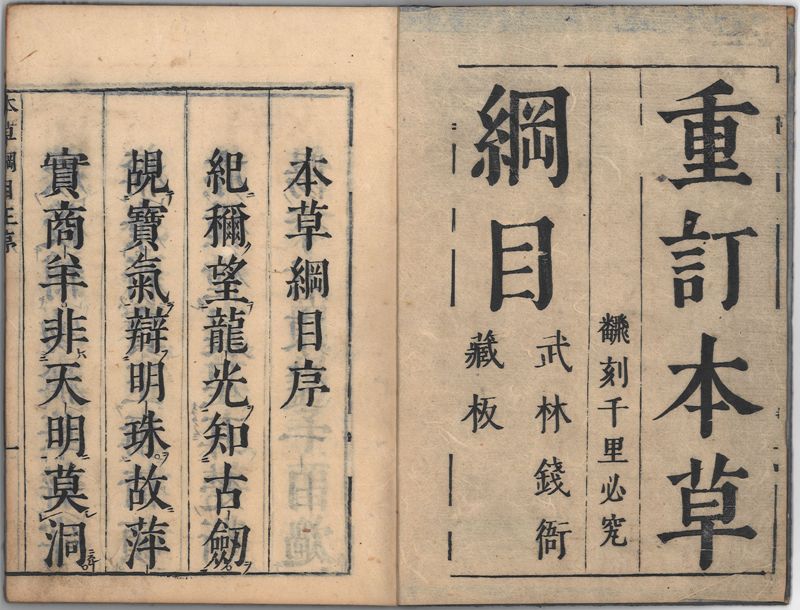 重訂本草
飜刻千里必究
綱目
武林錢衙
藏板
本草綱目序
紀穪望龍光知古劒
覘寶氣辯明珠故萍
實商羊非天明莫洞
本草綱目王序 一